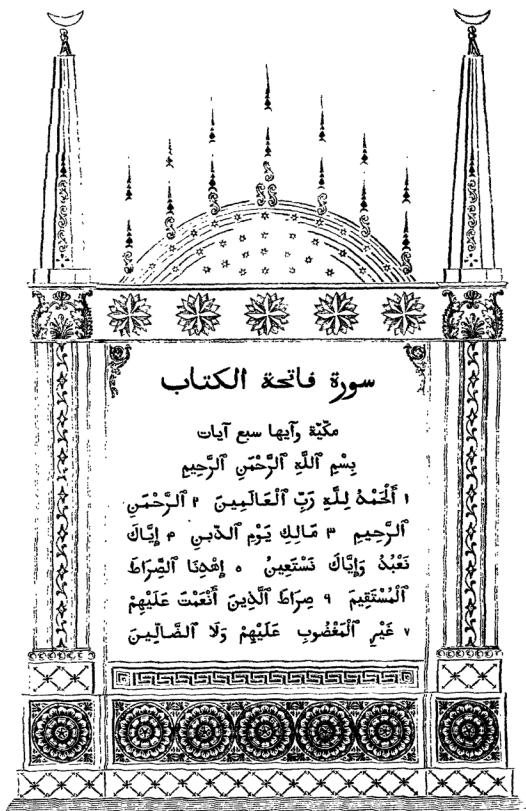 سورة فاتحة الكتاب
مكيّة وآيها سبع آيات
بِسْمِ ٱللَّهِ ٱلرَّحْمَنِ ٱلرَّحِيمِ
١ أَلْحَمْدُ لِلَّهِ رَبِّ ٱلْعَالَمِينَ ٢ ٱلرَّحْمَنِ
ٱلرَّحِيمِ ٣ مَالِكِ يَوْمِ ٱلدِّينِ ۴ إِيَّاكَ
نَعْبُدُ وَإِيَّاكَ نَسْتَعِينُ ٥ إِهْدِنَا ٱلصِّرَاطَ
ٱلْمُسْتَقِيمَ ٦ صِرَاطَ ٱلَّذِينَ أَنْعَمْتَ عَلَيْهِمْ
٧ غَيْرِ ٱلْمَغْضُوبِ عَلَيْهِمْ وَلَا ٱلضَّالِّينَ